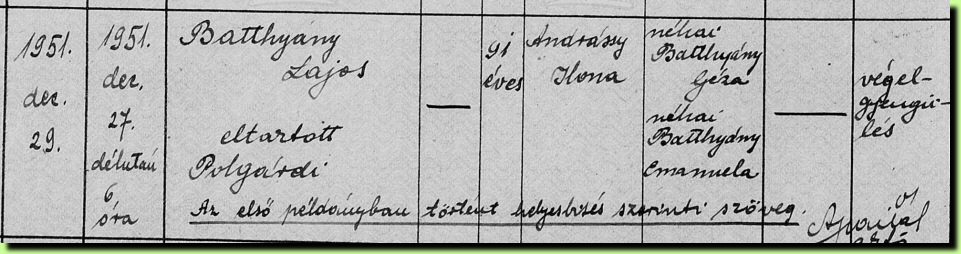 1951.
dec.
29.
1951.
dec.
27.
délután
6
óra
Batthyány
Lajos
eltartott
Polgárdi
91
éves
Andrássy
Ilona
néhai
Batthyány
Géza
néhai
Batthyány
Emanuela
végel-
gyengü-
lés
Az első példányban történt helyesbítés szerinti szöveg.